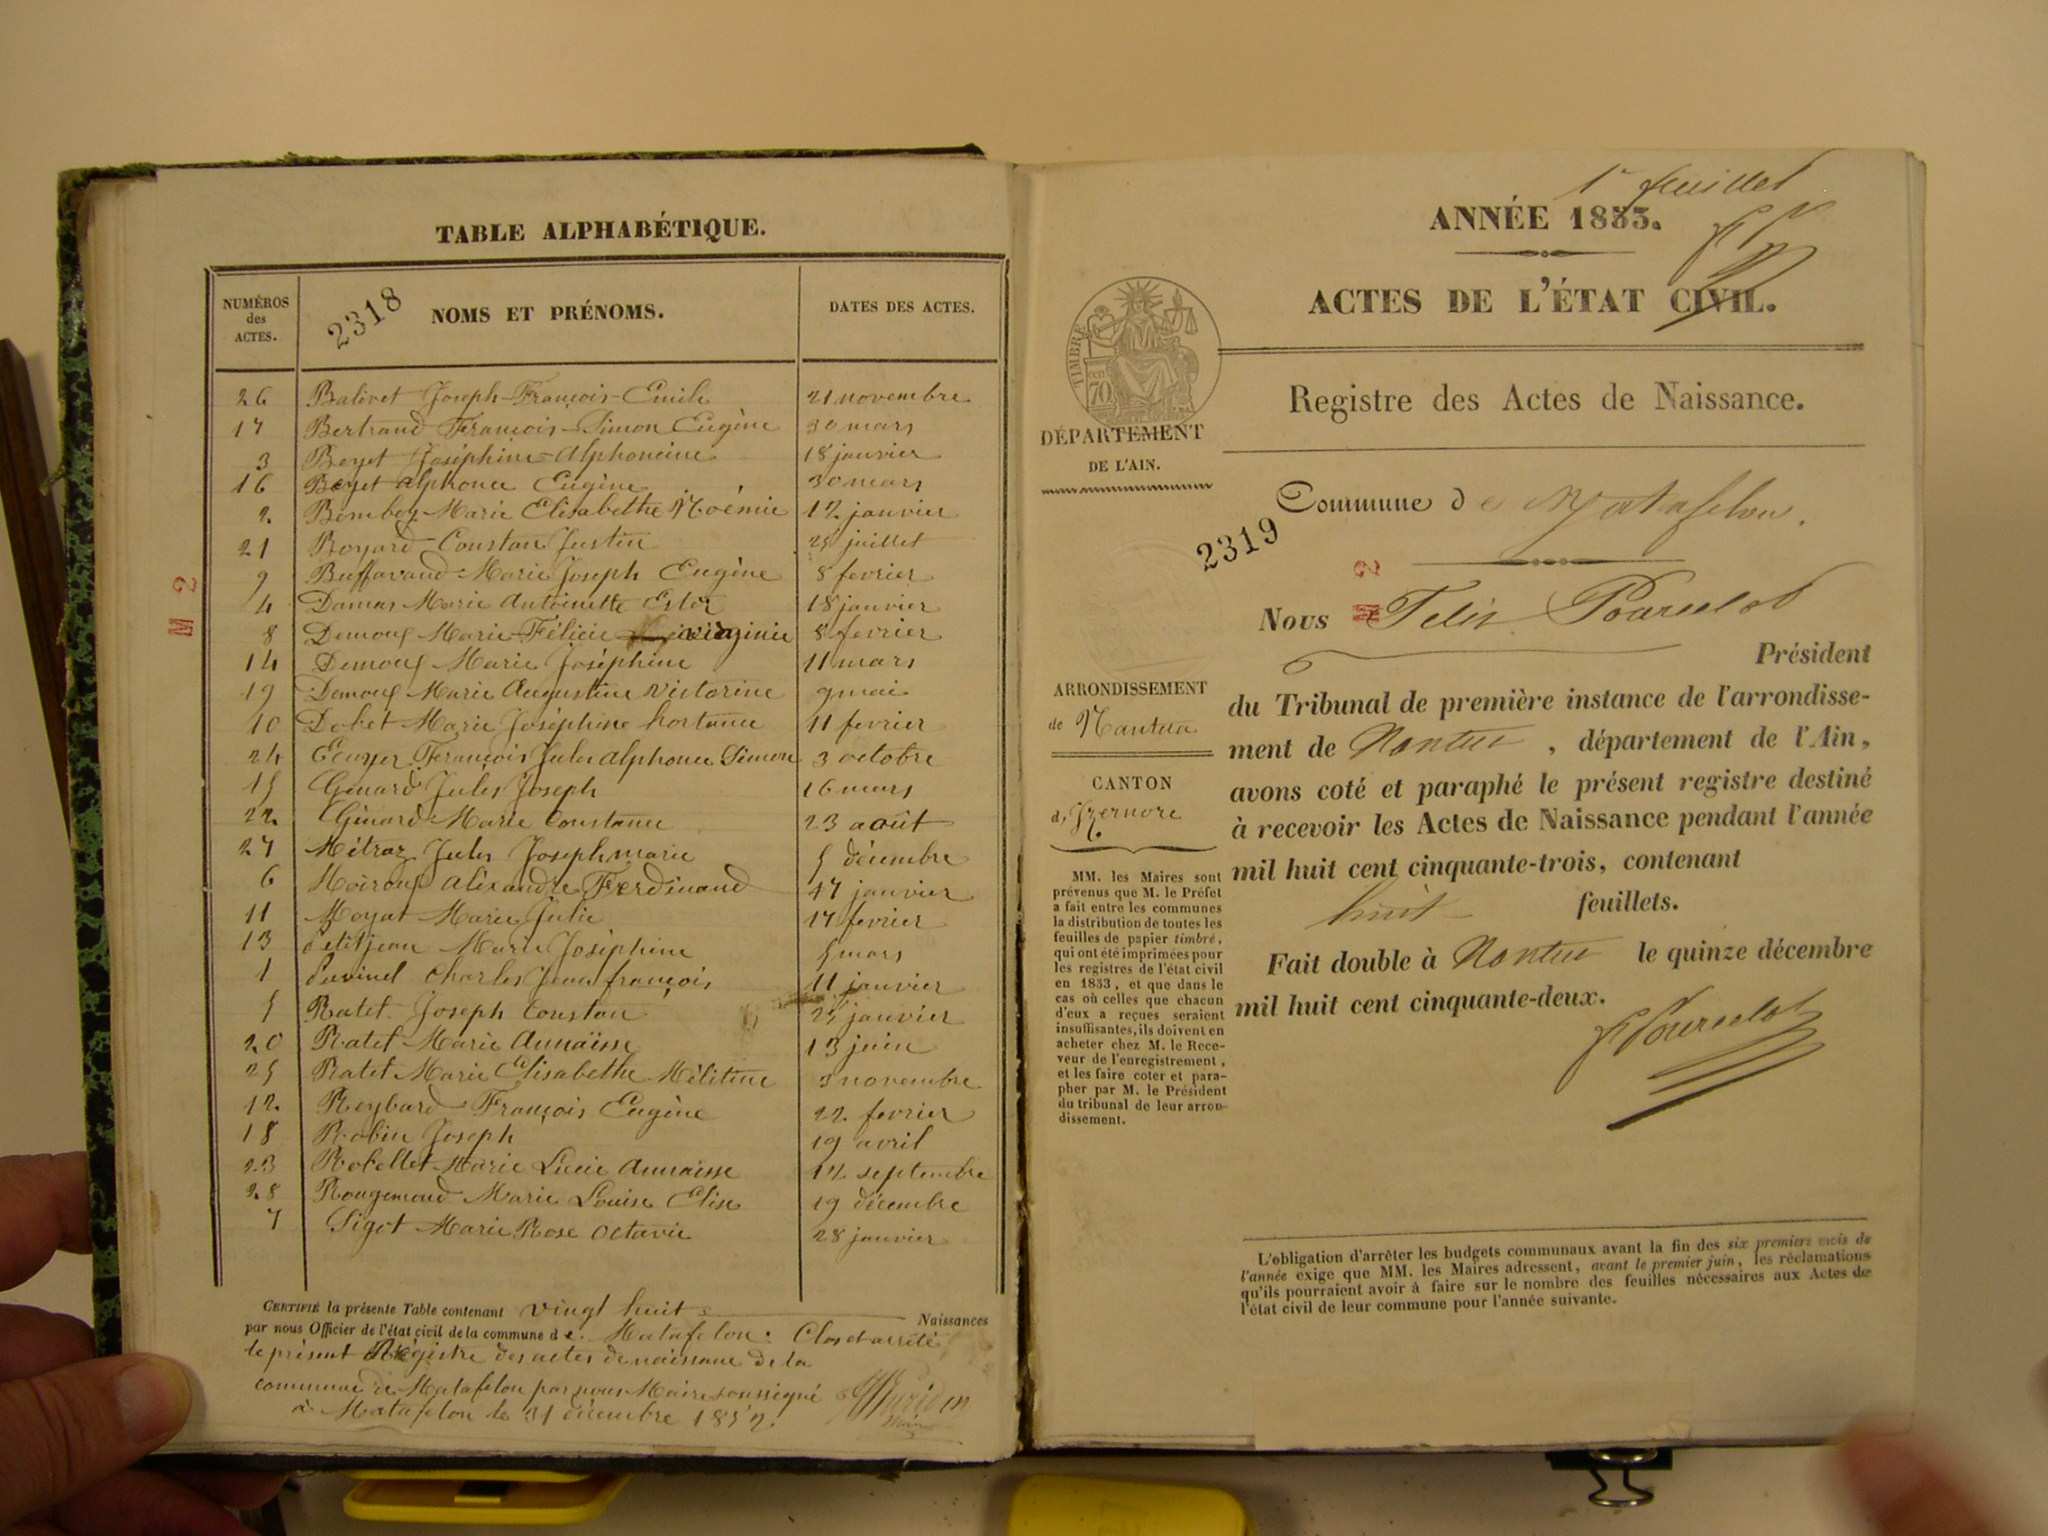 TABLE ALPHABÉTIQUE.
NUMÉROS des ACTES.
2318
NOMS ET PRÉNOMS.
DATES DES ACTES.
26 Balivet Joseph-François-Emile 21 novembre
17 Bertrand François-Simon Eugène 30 mars
3 Beyet Joséphine-Alphonsine 18 janvier
16 Beyet alphonse Eugène 30 mars
2 Marie Elisabethe Noémie 12 janvier
21 Boyard Constan Justin 25 juillet
9 Buffavand Marie Joseph Eugène 8 fevrier
4 Damas Marie Antoinette Ester 18 janvier
8 Marie Félicie virginie 8 fevrier
14 Marie Joséphine 11 mars
19 Marie Augustine Victorine 9 mai
10 Marie Joséphine hortense 11 fevrier
24 Ecuyer François Jules Alphonse Simon 3 octobre
15 Génard Jules Joseph 16 mars
22 Génard Marie Constance 23 août
27 Métraz Jules Joseph marie 5 décembre
6 Alexandre Ferdinand 27 janvier
11 Moyat Marie Julie 17 fevrier
13 Petitjean Marie Joséphine 5 mars
1 Charles Jean françois 11 janvier
5 Ratet Joseph Constan janvier
20 Ratet Marie Annaïsse 13 juin
25 Ratet Marie Elisabethe Mélitine 3 novembre
12 Reybard François Eugène 22 fevrier
18 Robin Joseph 19 avril
23 Robellet Marie Lucie Annaïsse 12 septembre
28 Rougemond Marie Louise Elise 19 décembre
7 Sigot Marie Rose Octavie 28 janvier
M 2
CERTIFIÉ la présente Table contenant vingt huit Naissances
par nous Officier de l'état civil de la commune de Matafelon. Clos et arrêté
le présent Régistre des actes de naissance de la
commune de Matafelon par nous Maire soussigné
à Matafelon le 31 décembre 1852.
Maire
1er feuillet
ANNÉE 1853.
ACTES DE L'ÉTAT CIVIL.
TIMBRE
70
Registre des Actes de Naissance.
DÉPARTEMENT
DE L'AIN.
Commune de Matafelon.
2319
M 2
Nous Felix Pourcelot
Président
du Tribunal de première instance de l'arrondisse-
ment de Nantua, département de l'Ain,
avons coté et paraphé le présent registre destiné
à recevoir les Actes de Naissance pendant l'année
mil huit cent cinquante-trois, contenant
huit feuillets.
Fait double à Nantua le quinze décembre
mil huit cent cinquante-deux.
F Pourcelot
ARRONDISSEMENT
de Nantua
CANTON
d'Izernore
MM. les Maires sont
prévenus que M. le Préfet
a fait entre les communes
la distribution de toutes les
feuilles de papier timbré,
qui ont été imprimées pour
les registres de l'état civil
en 1853, et que dans le
cas où celles que chacun
d'eux a reçues seraient
insuffisantes, ils doivent en
acheter chez M. le Rece-
veur de l'enregistrement,
et les faire coter et para-
pher par M. le Président
du tribunal de leur arron-
dissement.
L'obligation d'arrêter les budgets communaux avant la fin des six premiers mois de
l'année exige que MM. les Maires adressent, avant le premier juin, les réclamations
qu'ils pourraient avoir à faire sur le nombre des feuilles nécessaires aux Actes de
l'état civil de leur commune pour l'année suivante.